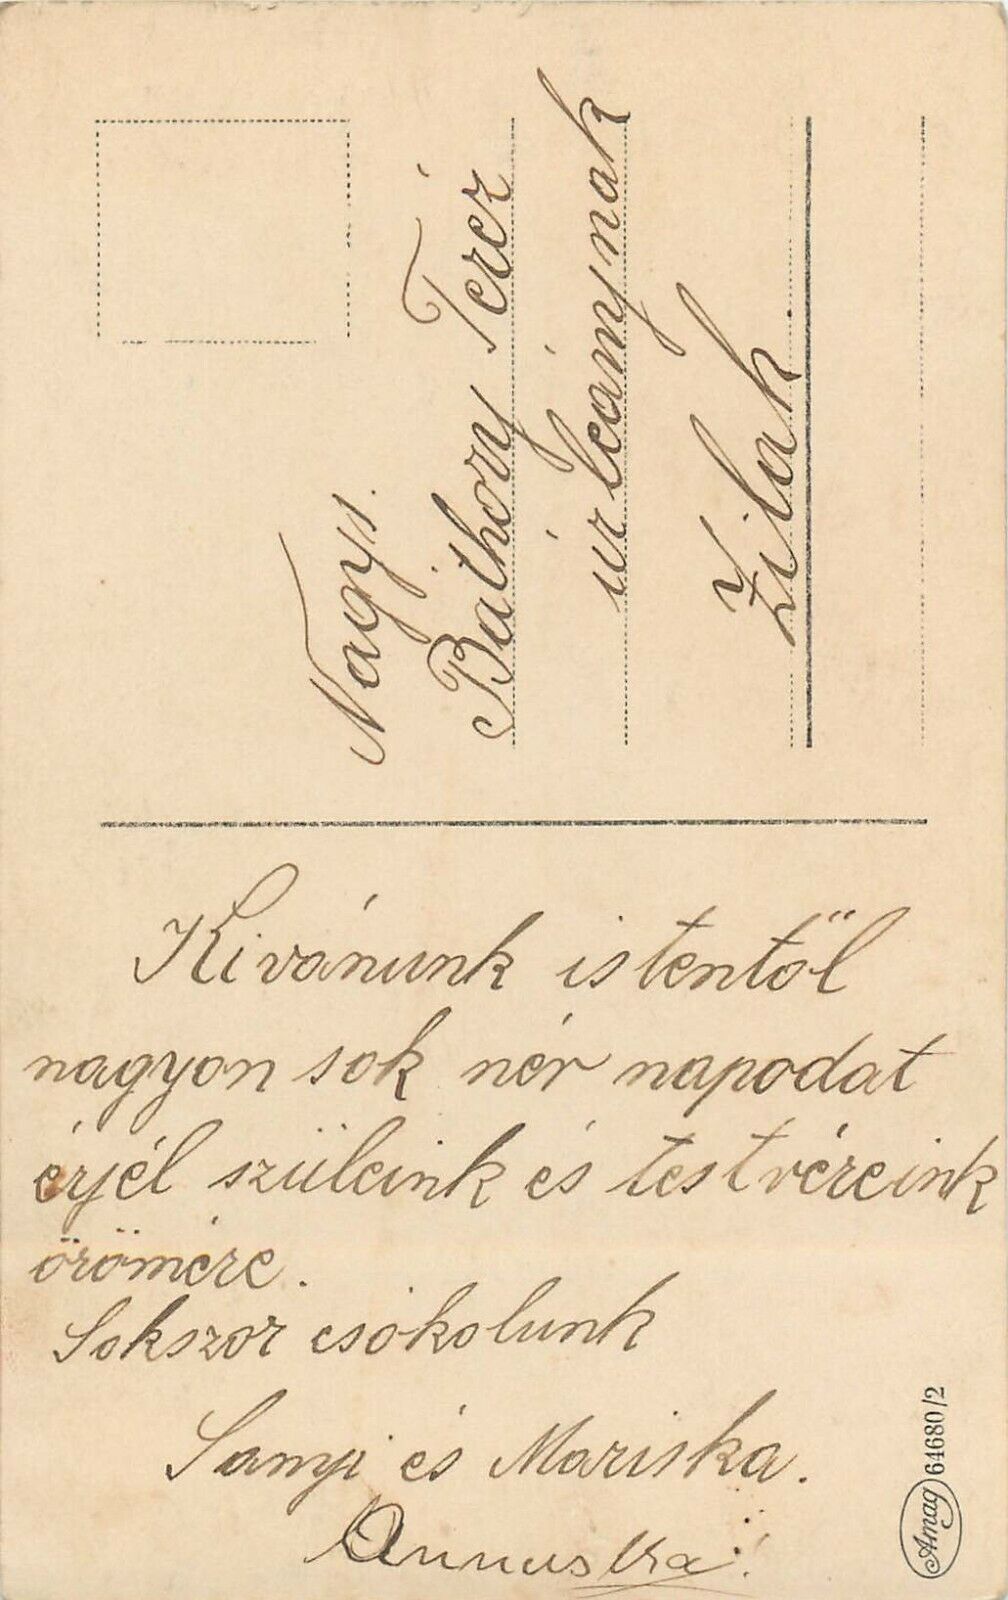 Nagys.
Báthory Teréz
úrleánynak
Zilah
Kivánunk istentől
nagyon sok név napodat
érjél szüleink és testvéreink
örömére.
Sokszor csokolunk
Sanyi és Mariska.
Annuska!
Amag 64680/2